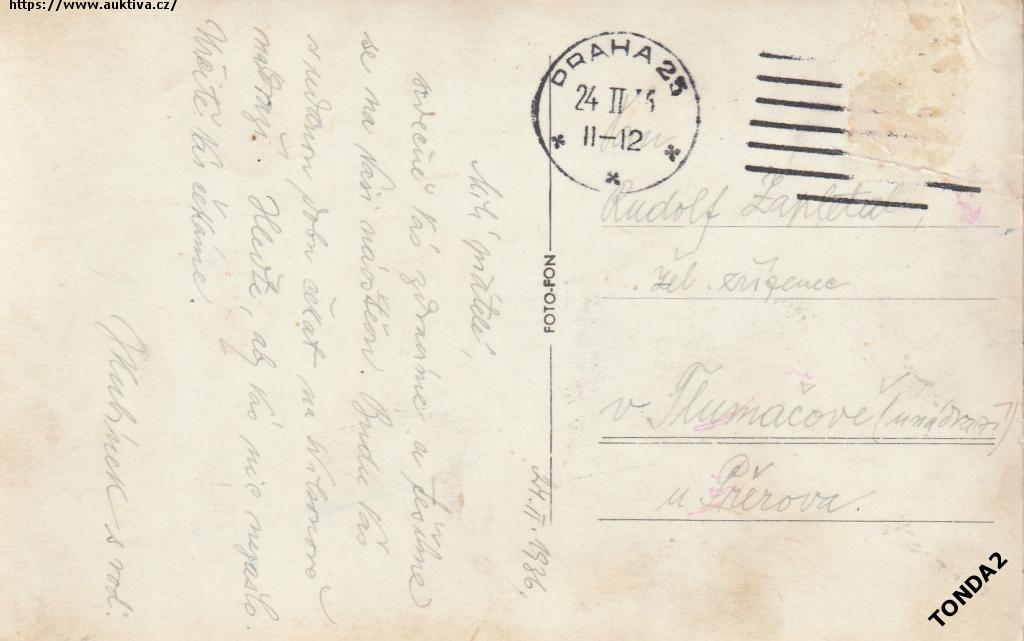 https://www.auktiva.cz/
PRAHA 25
24 II 36
11-12
Rudolf Zapletal,
žel. zřízenec
v Tlumačově (u nádraží)
u Přerova.
FOTO-FON
24.II.1936.
Milí přátelé,
srdečně Vás zdravíme a těšíme
se na Vaši návštěvu. Budu Vás
s sudbou čekat na Wilsonově
nádraží. Hleďte, aby Vás nic nezašlo.
Určitě Vás čekáme.
JKubínek s rod.
TONDA2